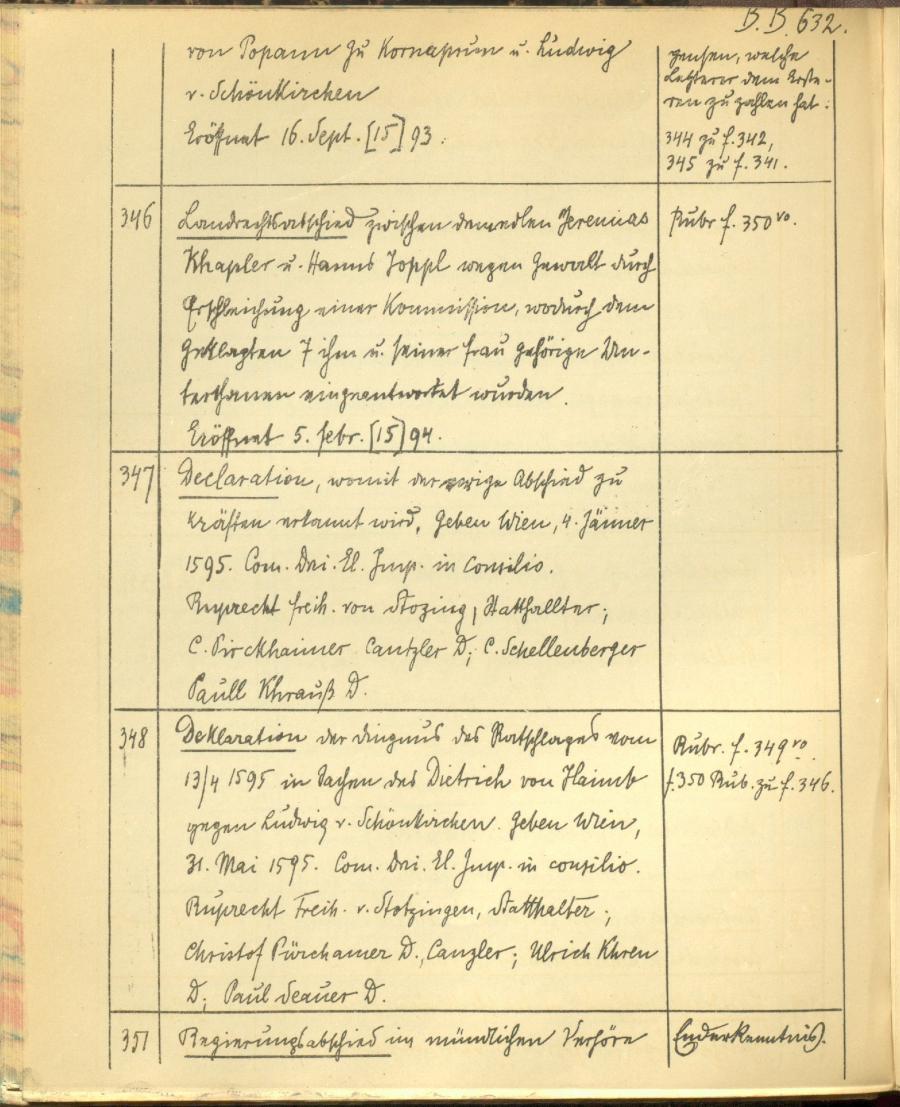 B. B. 632.
von Popann zu Kornasprun u. Ludwig
v. Schönkirchen
Eröffnet 16. Sept. [15] 93.
welche
Letzterer dem Erste-
ren zu zahlen hat:
344 zu f. 342,
345 zu f. 341.
346
Landrechtsabschied zwischen dem edlen Jeremias
Khapler u. Hanns Joppl wegen Gewalt durch
Erschleichung einer Kommission, wodurch dem
Geklagten 7 ihm u. seiner Frau gehörige Un-
terthanen eingeantwortet wurden.
Eröffnet 5. Febr. [15] 94.
Rubr f. 350 vo.
347
Declaration, womit der vorige Abschied zu
Kräften erkannt wird, Geben Wien, 4. Jänner
1595. Com. Dni. El. Imp. in consilio.
Ruprecht Freih. von Stozing, Statthallter;
C. Pirckhaimer Cantzler D; C. Schellenberger
Paull Khrauß D.
348
Deklaration der des Ratschlages vom
13/4 1595 in Sachen des Dietrich von Haimb
gegen Ludwig v. Schönkirchen. Geben Wien,
31. Mai 1595. Com. Dni. El. Imp. in consilio.
Ruprecht Freih. v. Stotzingen, Statthalter;
Christof Pürchamer D., Canzler; Ulrich Khren
D; Paul Seauer D.
Rubr. f. 349 vo.
f. 350 Rub. zu f. 346.
351
Regierungsabschied im mündlichen Verhöre
(Enderkenntnis).